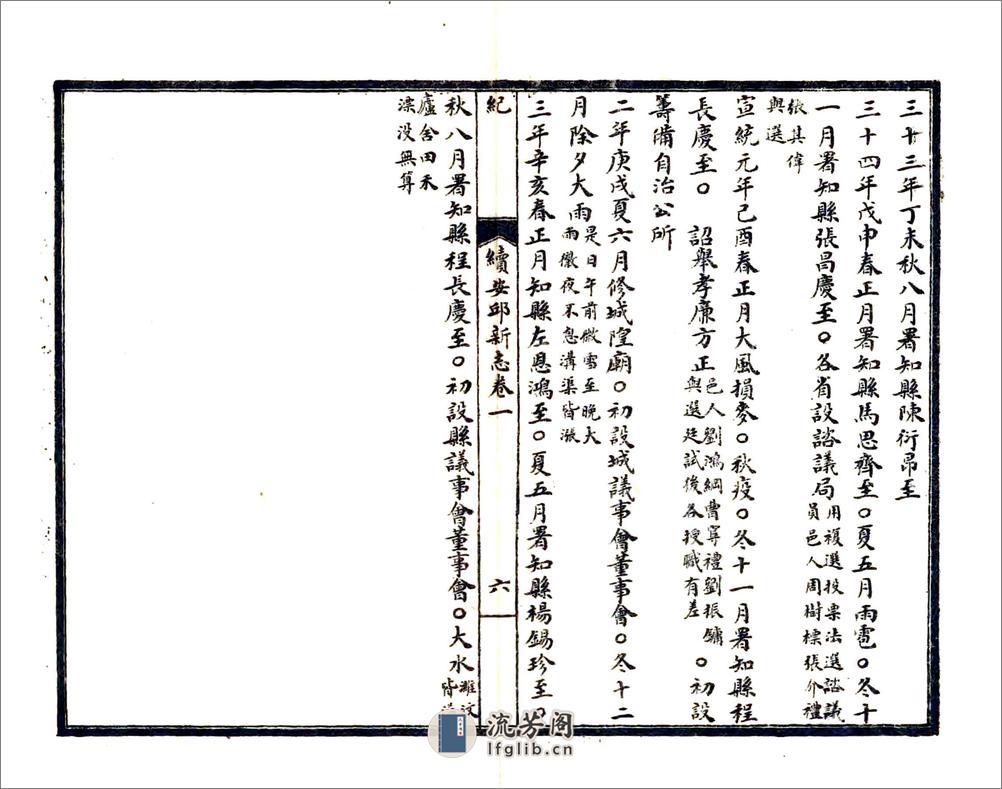 三十三年丁未秋八月署知縣陳衍昂至
三十四年戊申春正月署知縣馬思齊至○夏五月雨雹○冬十
一月署知縣張昌慶至○各省設諮議局用複選投票法選諮議
員邑人周樹標張介禮
張其偉
與選
宣統元年己酉春正月大風損麥○秋疫○冬十一月署知縣程
長慶至○詔舉孝廉方正邑人劉鴻綱曹寧禮劉振鏞
與選廷試後各授職有差○初設
籌備自治公所
二年庚戌夏六月修城隍廟○初設城議事會董事會○冬十二
月除夕大雨是日午前微雪至晚大
雨徹夜不息溝渠皆漲
三年辛亥春正月知縣左恩鴻至○夏五月署知縣楊錫珍至○
紀
續安邱新志卷一
六
秋八月署知縣程長慶至○初設縣議事會董事會○大水濰汶
皆
廬舍田禾
漂沒無算
流芳阁
lfglib.cn